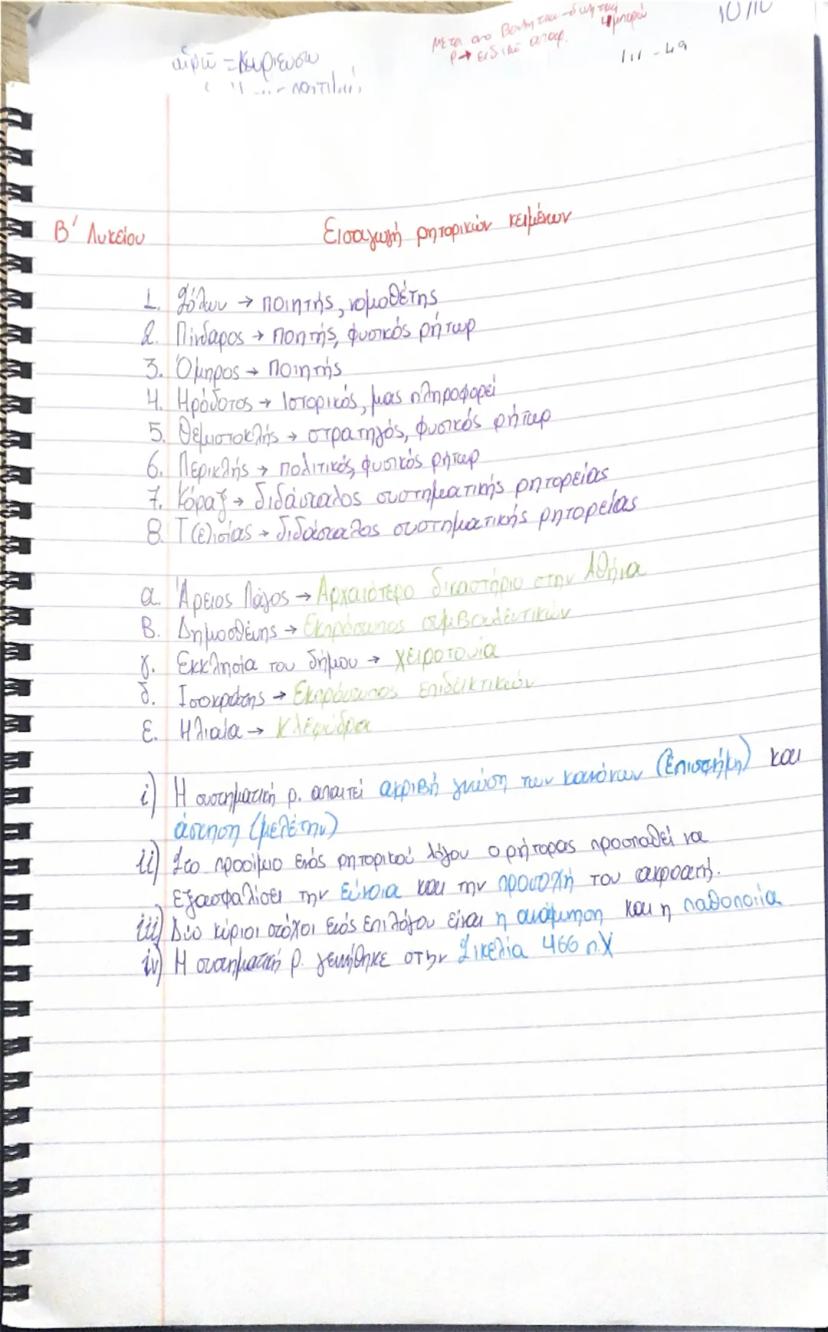 10/10
Μετα απο
αἱρῶ = κυριευσω
ρ → ειδικό απαρ.
Β΄ Λυκείου Εισαγωγή ρητορικών κειμένων
1. Σόλων → ποιητής, νομοθέτης
2. Πίνδαρος → ποητής, φυσικός ρήτωρ
3. Όμηρος → ποιητής
4. Ηρόδοτος → Ιστορικός, μας πληροφορεί
5. Θεμιστοκλής → στρατηγός, φυσικός ρήτωρ
6. Περικλής → πολιτικός, φυσικός ρήτωρ
7. Κόραξ → διδάσκαλος συστηματικής ρητορείας
8. Τ(ε)ισίας → διδάσκαλος συστηματικής ρητορείας
α. Άρειος Πάγος → Αρχαιότερο δικαστήριο στην Αθήνα
β. Δημοσθένης → Εκπρόσωπος συμβουλευτικών
γ. Εκκλησία του δήμου → χειροτονία
δ. Ισοκράτης → Εκπρόσωπος επιδεικτικών
ε. Ηλιαία → κλεψύδρα
i) Η συστηματική ρ. απαιτεί ακριβή γνώση των κανόνων (επιστήμη) και
άσκηση (μελέτην)
ii) Στο προοίμιο ενός ρητορικού λόγου ο ρήτορας προσπαθεί να
εξασφαλίσει την εύνοια και την προσοχή του ακροατή.
iii) Δύο κύριοι στόχοι ενός επιλόγου είναι η ανάμνηση και η παθοποιία
iv) Η συστηματική ρ. γεννήθηκε στην Σικελία 466 π.Χ